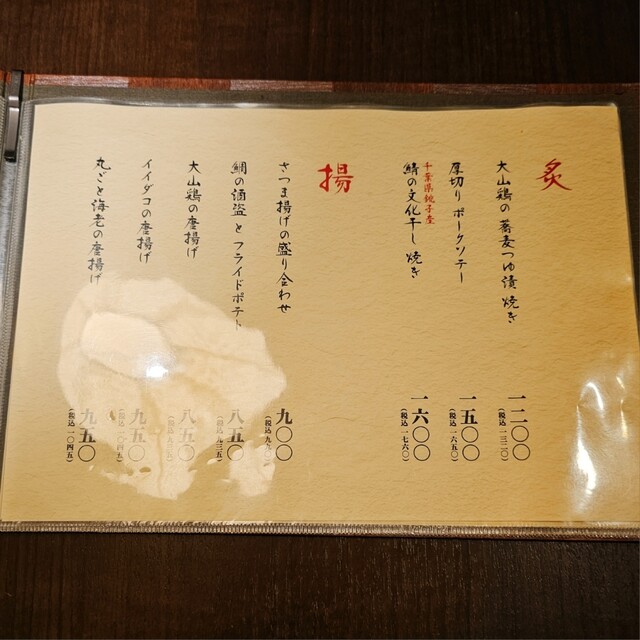 炙
大山鶏の蕎麦つゆ漬焼き 一二〇〇
(税込 一三二〇)
厚切り ポークソテー 一五〇〇
(税込 一六五〇)
千葉県銚子産
鯖の文化干し焼き 一六〇〇
(税込 一七六〇)
揚
さつま揚げの盛り合わせ 九〇〇
(税込 九九〇)
鯛の酒盗とフライドポテト 八五〇
(税込 九三五)
大山鶏の唐揚げ 八五〇
(税込 九三五)
イイダコの唐揚げ 九五〇
(税込 一〇四五)
丸ごと海老の唐揚げ 九五〇
(税込 一〇四五)